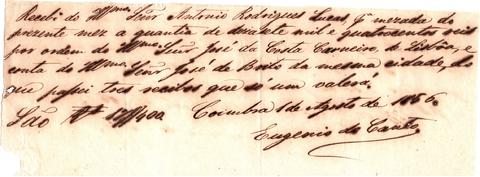 Recebi do Illmo Sñor Antonio Rodrigues Lucas, Jr mezada do
prezente mez a quantia de dezasete mil e quatrocentos reis
por ordem do Illmo Sñor José da Costa Carneiro de Lisbôa, e
conta do Illmo Sñor José de Brito da mesma cidade, do
que passei tres recibos que só um valerá.
São Rs 17$400 Coimbra 1 de Agosto de 1856.
Eugenio do Canto